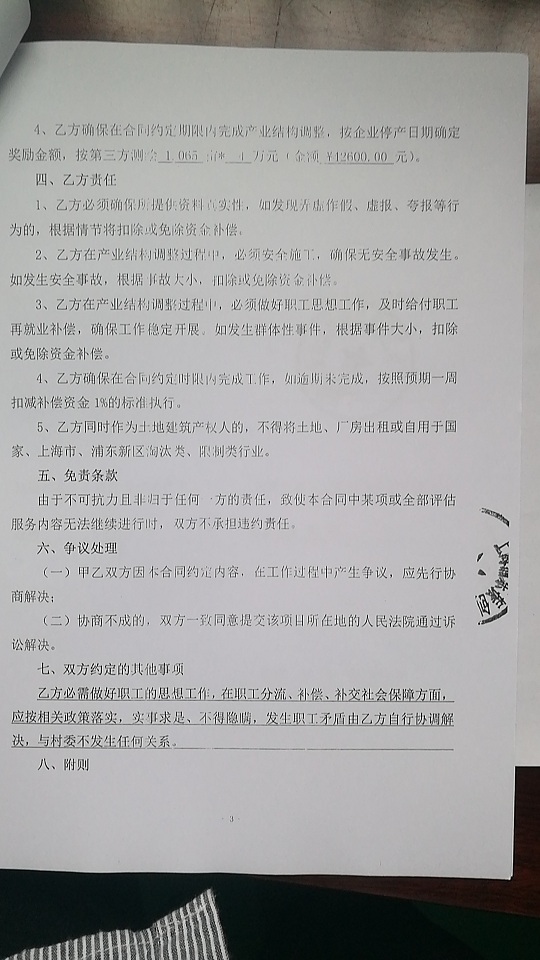 4、乙方确保在合同约定期限内完成产业结构调整，按企业停产日期确定
奖励金额，按第三方测绘 1.065 亩* 万元（金额 ¥42600.00 元）。
四、乙方责任
1、乙方必须确保所提供资料真实性，如发现弄虚作假、虚报、夸报等行
为的，根据情节将扣除或免除资金补偿。
2、乙方在产业结构调整过程中，必须安全施工，确保无安全事故发生。
如发生安全事故，根据事故大小，扣除或免除资金补偿。
3、乙方在产业结构调整过程中，必须做好职工思想工作，及时给付职工
再就业补偿，确保工作稳定开展。如发生群体性事件，根据事件大小，扣除
或免除资金补偿。
4、乙方确保在合同约定时限内完成工作，如逾期未完成，按照预期一周
扣减补偿资金 1%的标准执行。
5、乙方同时作为土地建筑产权人的，不得将土地、厂房出租或自用于国
家、上海市、浦东新区淘汰类、限制类行业。
五、免责条款
由于不可抗力且非归于任何一方的责任，致使本合同中某项或全部评估
服务内容无法继续进行时，双方不承担违约责任。
六、争议处理
（一）甲乙双方因本合同约定内容，在工作过程中产生争议，应先行协
商解决；
（二）协商不成的，双方一致同意提交该项目所在地的人民法院通过诉
讼解决。
七、双方约定的其他事项
乙方必需做好职工的思想工作，在职工分流、补偿、补交社会保障方面，
应按相关政策落实，实事求是、不得隐瞒，发生职工矛盾由乙方自行协调解
决，与村委不发生任何关系。
八、附则
- 3 -